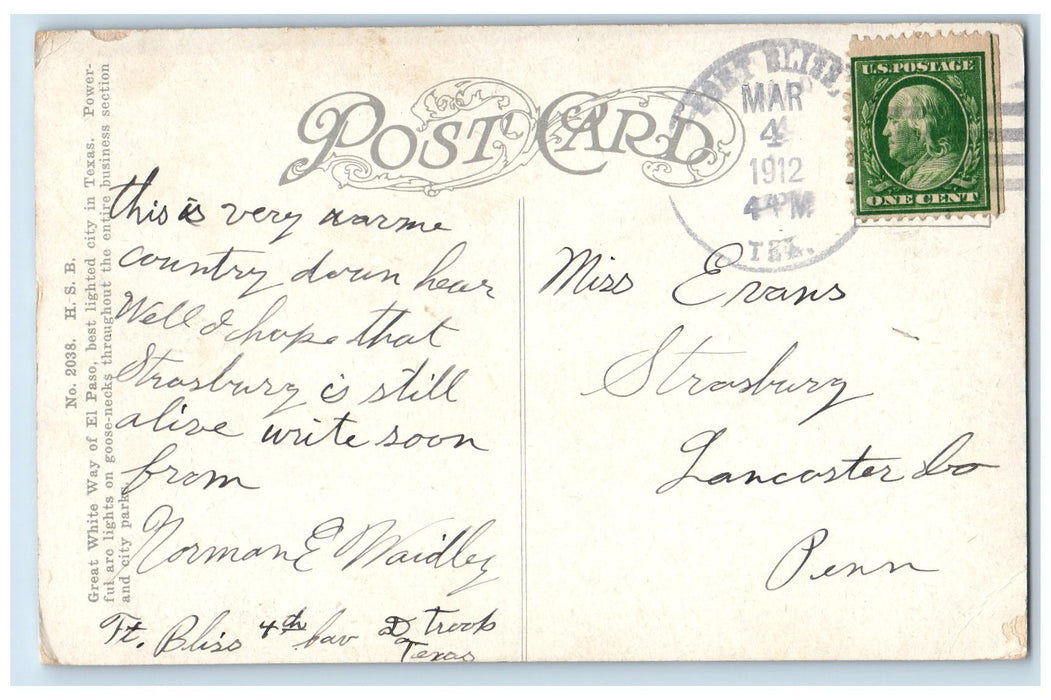 POST CARD
FORT BLISS,
MAR
4
1912
4 PM
TEX.
U.S. POSTAGE
ONE CENT
No. 2038. H. S. B.
Great White Way of El Paso, best lighted city in Texas. Power-
ful arc lights on goose-necks throughout the entire business section
and city parks.
this is very warme
country down hear
Well I hope that
Strasburg is still
alive write soon
from
Norman E Waidley
Ft. Bliss 4th Cav D troop
Texas
Miss Evans
Strasburg
Lancaster Co
Penn